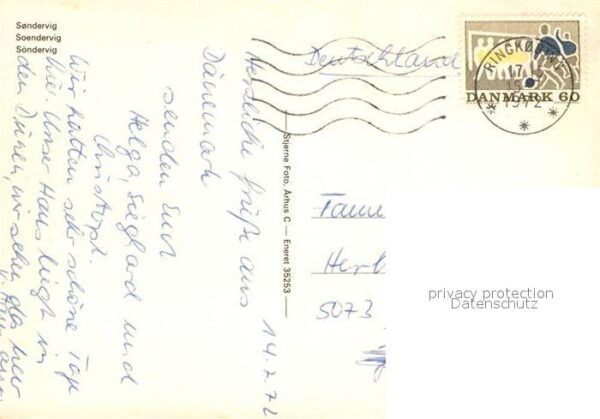 Søndervig
Soendervig
Söndervig
Deutschland
RINGKØBING
17.
1972
DANMARK 60
Herzliche Grüße aus
Dänemark
senden Euch
Helga, Sieghard und
Christoph.
Wir hatten sehr schöne Tage
hier. Unser Haus liegt in
den Dünen, wir sehen das Meer
14.7.72
Stjerne Foto, Århus C — Eneret 35253
Herb
5073
privacy protection
Datenschutz